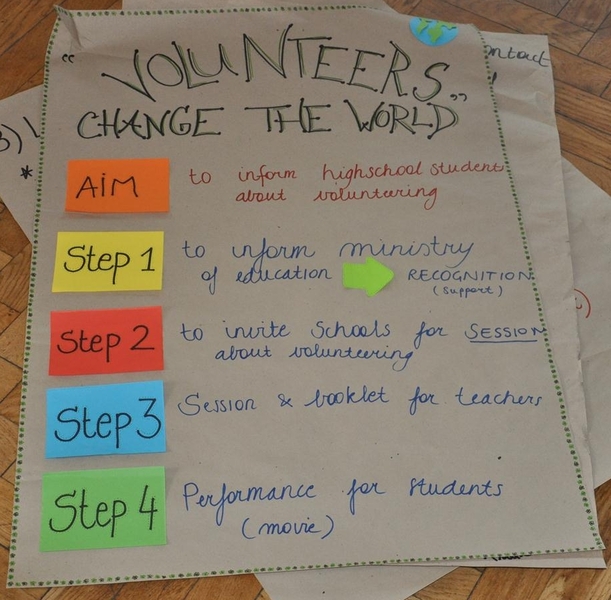 "VOLUNTEERS"
CHANGE THE WORLD
AIM
to inform highschool student
about volunteering
Step 1
to inform ministry
of education
RECOGNITION
(support)
Step 2
to invite schools for SESSION
about volunteering
Step 3
Session & booklet for teachers
Step 4
Performance for students
(movie)
ontact
3)
*